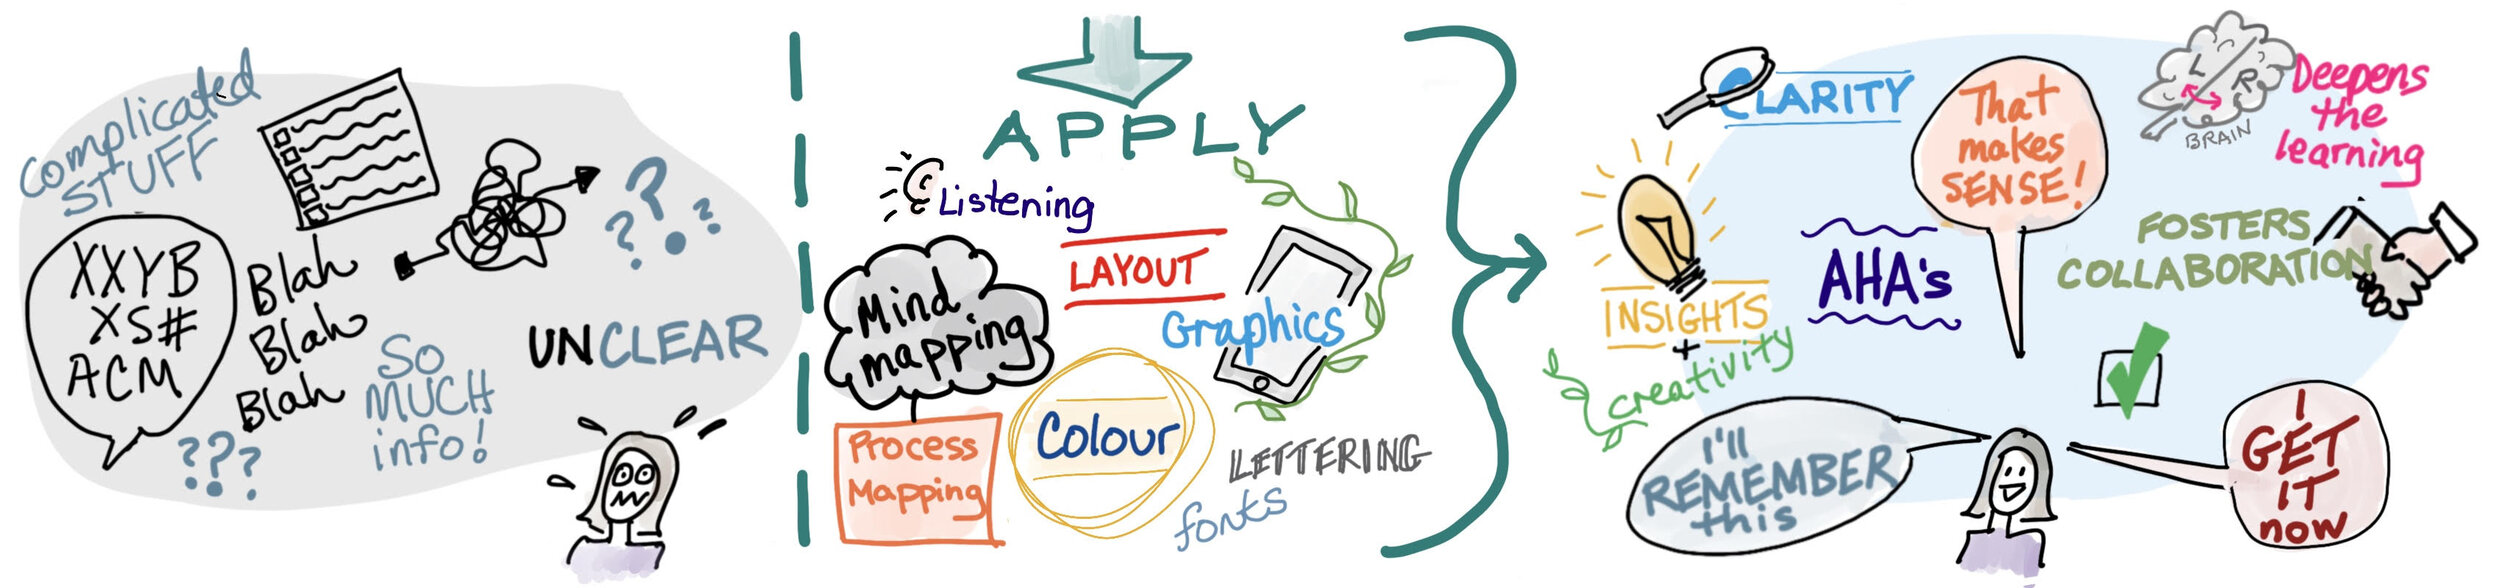 Complicated
STUFF
XXYB
XS#
ACM
Blah
Blah
Blah
???
???
SO
MUCH
info!
UNCLEAR
APPLY
Listening
LAYOUT
Mind
mapping
Graphics
Process
Mapping
Colour
LETTERING
fonts
CLARITY
INSIGHTS
+
creativity
That
makes
SENSE!
AHA's
L
R
BRAIN
Deepens
the
learning
FOSTERS
COLLABORATION
I'll
REMEMBER
this
I
GET
IT
now